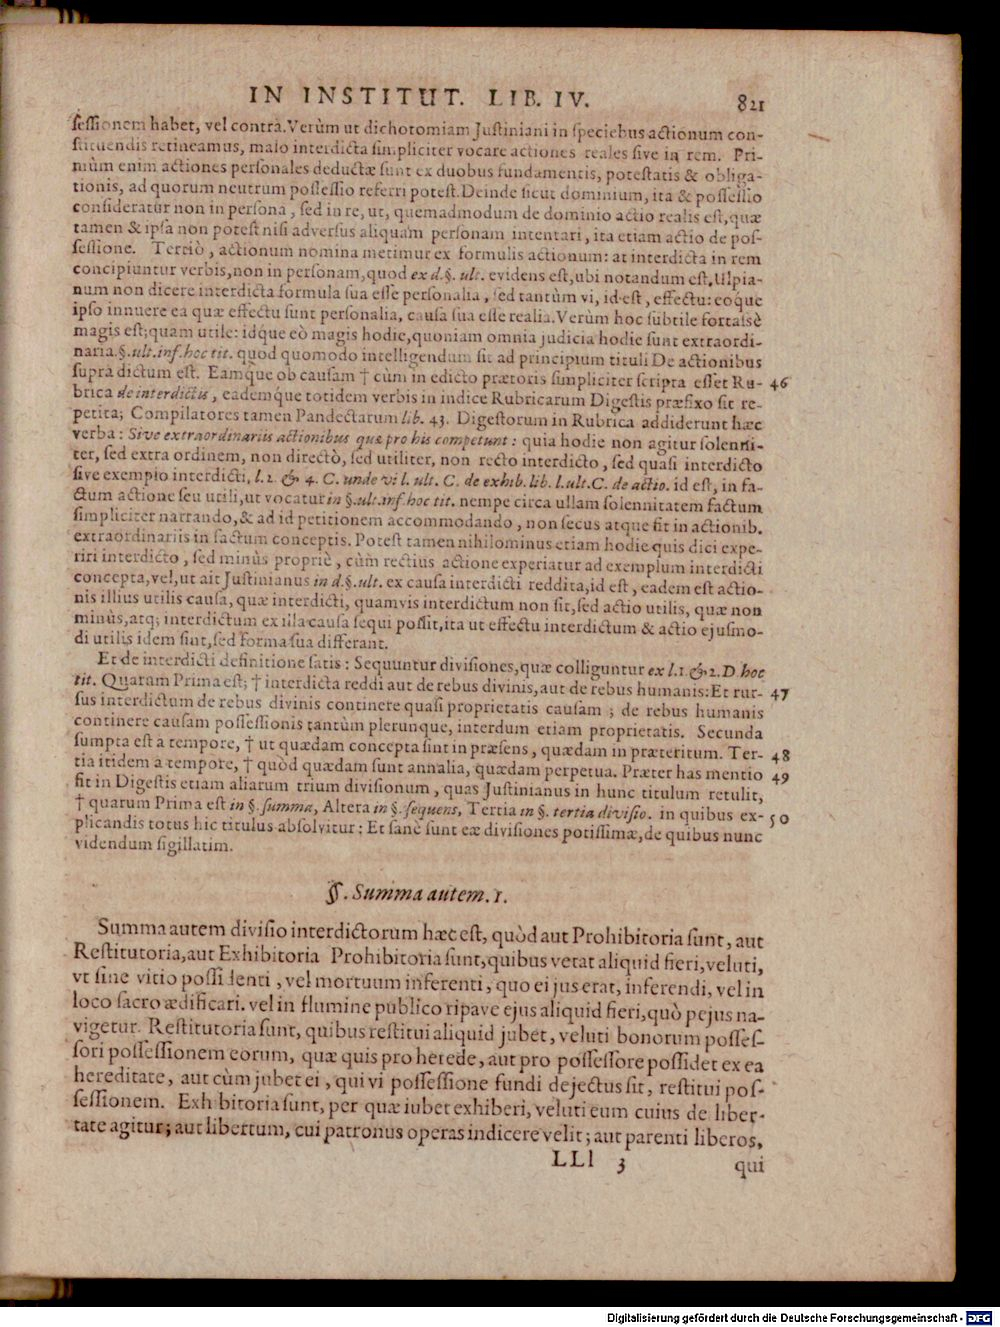 IN INSTITUT. LIB. IV. 821
sessionem habet, vel contrà. Verùm ut dichotomiam Justiniani in speciebus actionum con-
stituendis retineamus, malo interdicta simpliciter vocare actiones reales sive in rem. Pri-
mùm enim actiones personales deductæ sunt ex duobus fundamentis, potestatis & obliga-
tionis, ad quorum neutrum possessio referri potest. Deinde sicut dominium, ita & possessio
consideratur non in persona, sed in re, ut, quemadmodum de dominio actio realis est, quæ
tamen & ipsa non potest nisi adversus aliquam personam intentari, ita etiam actio de pos-
sessione. Tertiò, actionum nomina metimur ex formulis actionum: at interdicta in rem
concipiuntur verbis, non in personam, quod ex d. §. ult. evidens est, ubi notandum est, Ulpia-
num non dicere interdicta formula sua esse personalia, sed tantùm vi, id est, effectu: eoque
ipso innuere ea quæ effectu sunt personalia, causa sua esse realia. Verùm hoc subtile fortassè
magis est; quam utile: idque eò magis hodie, quoniam omnia judicia hodie sunt extraordi-
naria. §. ult. inf. hoc tit. quod quomodo intelligendum sit ad principium tituli De actionibus
supra dictum est. Eamque ob causam † cùm in edicto prætoris simpliciter scripta esset Ru- 46
brica de interdictis, eademque totidem verbis in indice Rubricarum Digestis præfixo sit re-
petita; Compilatores tamen Pandectarum lib. 43. Digestorum in Rubrica addiderunt hæc
verba: Sive extraordinariis actionibus quæ pro his competunt: quia hodie non agitur solenni-
ter, sed extra ordinem, non directò, sed utiliter, non recto interdicto, sed quasi interdicto
sive exemplo interdicti, l. 2. & 4. C. unde vi l. ult. C. de exhib. lib. l. ult. C. de actio. id est, in fa-
ctum actione seu utili, ut vocatur in §. ult. inf. hoc tit. nempe circa ullam solennitatem factum
simpliciter narrando, & ad id petitionem accommodando, non secus atque fit in actionib.
extraordinariis in factum conceptis. Potest tamen nihilominus etiam hodie quis dici expe-
riri interdicto, sed minùs propriè, cùm rectius actione experiatur ad exemplum interdicti
concepta, vel, ut ait Justinianus in d. §. ult. ex causa interdicti reddita, id est, eadem est actio-
nis illius utilis causa, quæ interdicti, quamvis interdictum non sit, sed actio utilis, quæ non
minùs, atq; interdictum ex illa causa sequi possit, ita ut effectu interdictum & actio ejusmo-
di utilis idem sint, sed forma sua differant.
Et de interdicti definitione satis: Sequuntur divisiones, quæ colliguntur ex l. 1. & 2. D. hoc
tit. Quarum Prima est; † interdicta reddi aut de rebus divinis, aut de rebus humanis: Et rur- 47
sus interdictum de rebus divinis continere quasi proprietatis causam; de rebus humanis
continere causam possessionis tantùm plerunque, interdum etiam proprietatis. Secunda
sumpta est a tempore, † ut quædam concepta sint in præsens, quædam in præteritum. Ter- 48
tia itidem a tempore, † quòd quædam sunt annalia, quædam perpetua. Præter has mentio 49
fit in Digestis etiam aliarum trium divisionum, quas Justinianus in hunc titulum retulit,
† quarum Prima est in §. summa, Altera in §. sequens, Tertia in §. tertia divisio. in quibus ex- 50
plicandis totus hic titulus absolvitur: Et sanè sunt eæ divisiones potissimæ, de quibus nunc
videndum sigillatim.
§. Summa autem. 1.
Summa autem divisio interdictorum hæc est, quòd aut Prohibitoria sunt, aut
Restitutoria, aut Exhibitoria Prohibitoria sunt, quibus vetat aliquid fieri, veluti,
vt sine vitio possidenti, vel mortuum inferenti, quo ei jus erat, inferendi, vel in
loco sacro ædificari. vel in flumine publico ripave ejus aliquid fieri, quò pejus na-
vigetur. Restitutoria sunt, quibus restitui aliquid jubet, veluti bonorum posses-
sori possessionem eorum, quæ quis pro herede, aut pro possessore possidet ex ea
hereditate, aut cùm jubet ei, qui vi possessione fundi dejectus sit, restitui pos-
sessionem. Exh bitoria sunt, per quæ iubet exhiberi, veluti eum cuius de liber-
tate agitur; aut libertum, cui patronus operas indicere velit; aut parenti liberos,
LLl 3 qui
Digitalisierung gefördert durch die Deutsche Forschungsgemeinschaft - DFG